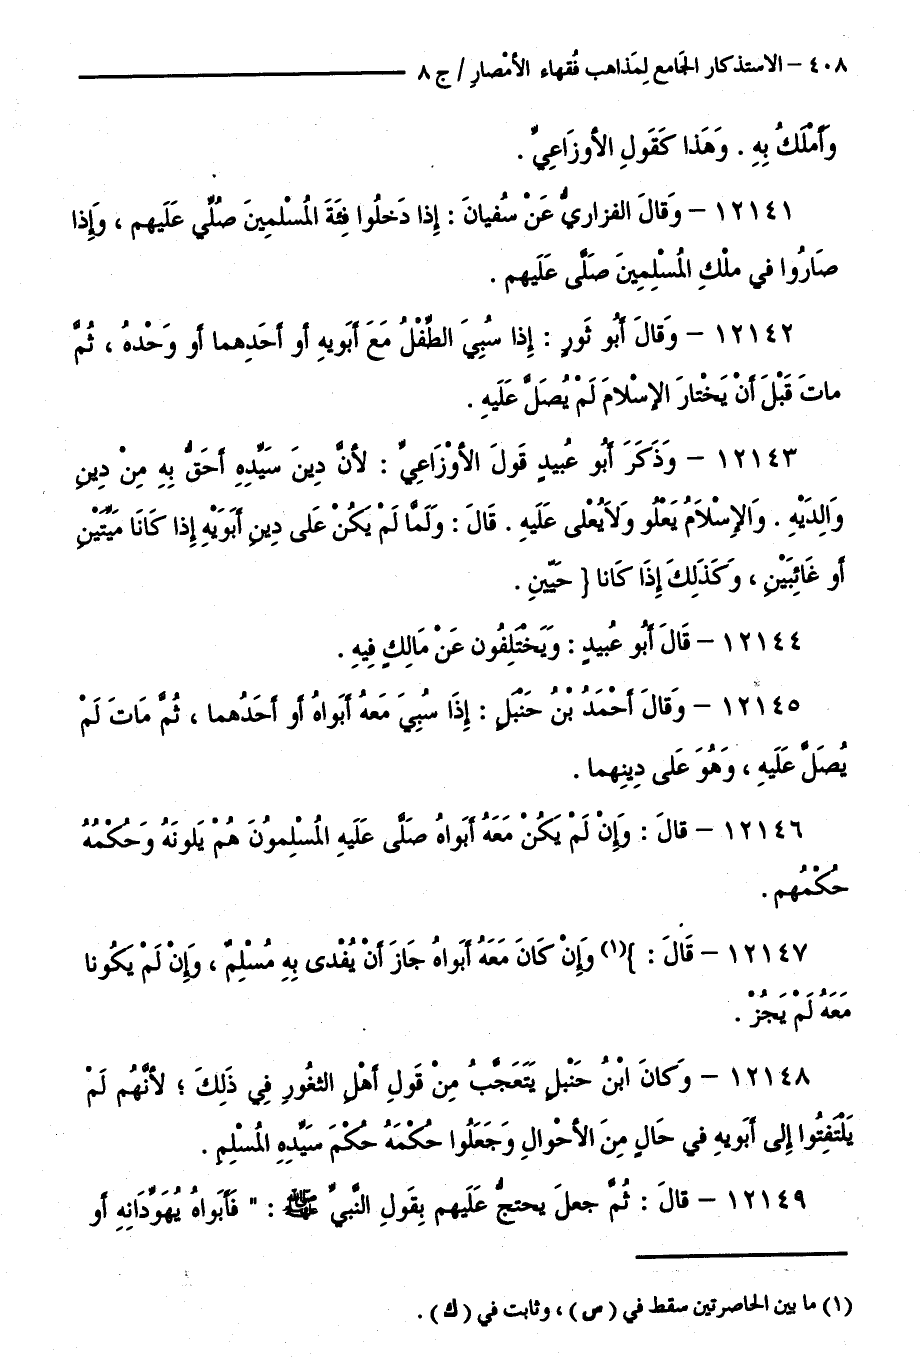 ٤٠٨ – الاستذكار الجَامع لِمَذاهب فُقهاء الأمْصارِ / ج ٨
وَأَمْلَكُ بِهِ . وَهَذا كَقَولِ الأوزَاعِيِّ .
١٢١٤١ – وَقالَ الفزاريُّ عَنْ سُفيانَ : إِذا دَخلُوا فِئَةَ المُسْلمِينَ صُلِّي عَلَيهم ، وَإِذا
صَارُوا في ملْكِ المُسْلِمِينَ صَلَّى عَلَيهم .
١٢١٤٢ – وَقالَ أَبُو ثَورٍ : إِذا سُبِيَ الطِّفْلُ مَعَ أبَويهِ أو أحَدِهما أو وَحْدهُ ، ثُمَّ
ماتَ قَبْلَ أنْ يَخْتارَ الإِسْلامَ لَمْ يُصَلَّ عَلَيهِ .
١٢١٤٣ – وَذَكَرَ أَبُو عُبيدٍ قَولَ الأوْزَاعِيِّ : لأنَّ دِينَ سَيِّدِهِ أحَقُّ بِهِ مِنْ دِينِ
وَالِدَيْهِ . وَالإِسْلاَمُ يَعْلُو وَلاَيُعْلى عَلَيهِ . قَالَ : وَلَمَّا لَمْ يكُنْ عَلى دينِ أبَوَيْهِ إذا كَانَا مَيِّتَيْنِ
أو غَائِبَيْنِ ، وَكَذَلِكَ إِذَا كَانا { حَيّينِ .
١٢١٤٤ – قَالَ أَبُو عُبيدٍ : وَيَخْتَلِفُون عَنْ مَالِكٍ فِيهِ .
١٢١٤٥ – وَقالَ أحْمَدُ بْنُ حَنْبَلٍ : إِذَا سُبِيَ مَعَهُ أَبَواهُ أو أحَدُهما ، ثُمَّ مَاتَ لَمْ
يُصَلَّ عَلَيهِ ، وَهُوَ عَلى دِينِهما .
١٢١٤٦ – قالَ : وَإِنْ لَمْ يَكُنْ مَعَهُ أبَواهُ صَلَّى عَلَيهِ المُسْلِمونَ هُمْ يَلونَهُ وَحُكْمُهُ
حُكْمُهم .
١٢١٤٧ – قَالَ : }(١) وَإِنْ كَانَ مَعَهُ أَبَواهُ جَازَ أنْ يُفْدى بِهِ مُسْلِمٌ ، وَإِنْ لَمْ يَكُونا
مَعَهُ لَمْ يَجُزْ .
١٢١٤٨ – وَكانَ ابْنُ حَنْبلٍ يَتَعَجَّبُ مِنْ قَولِ أهْلِ الثغُورِ فِي ذَلِكَ ؛ لأنَّهُم لَمْ
يَلْتَفِتُوا إِلى أَبَويهِ في حَالٍ مِنَ الأحْوالِ وَجَعَلُوا حُكْمَهُ حُكْمَ سَيِّدهِ المُسْلمِ .
١٢١٤٩ – قالَ : ثُمَّ جعلَ يحتجُّ عَلَيهم بِقَولِ النَّبيِّ ﷺ : " فَأَبَواهُ يُهَوِّدَانِهِ أو
(١) ما بين الحاصرتين سقط في ( ص ) ، وثابت في ( ك ) .